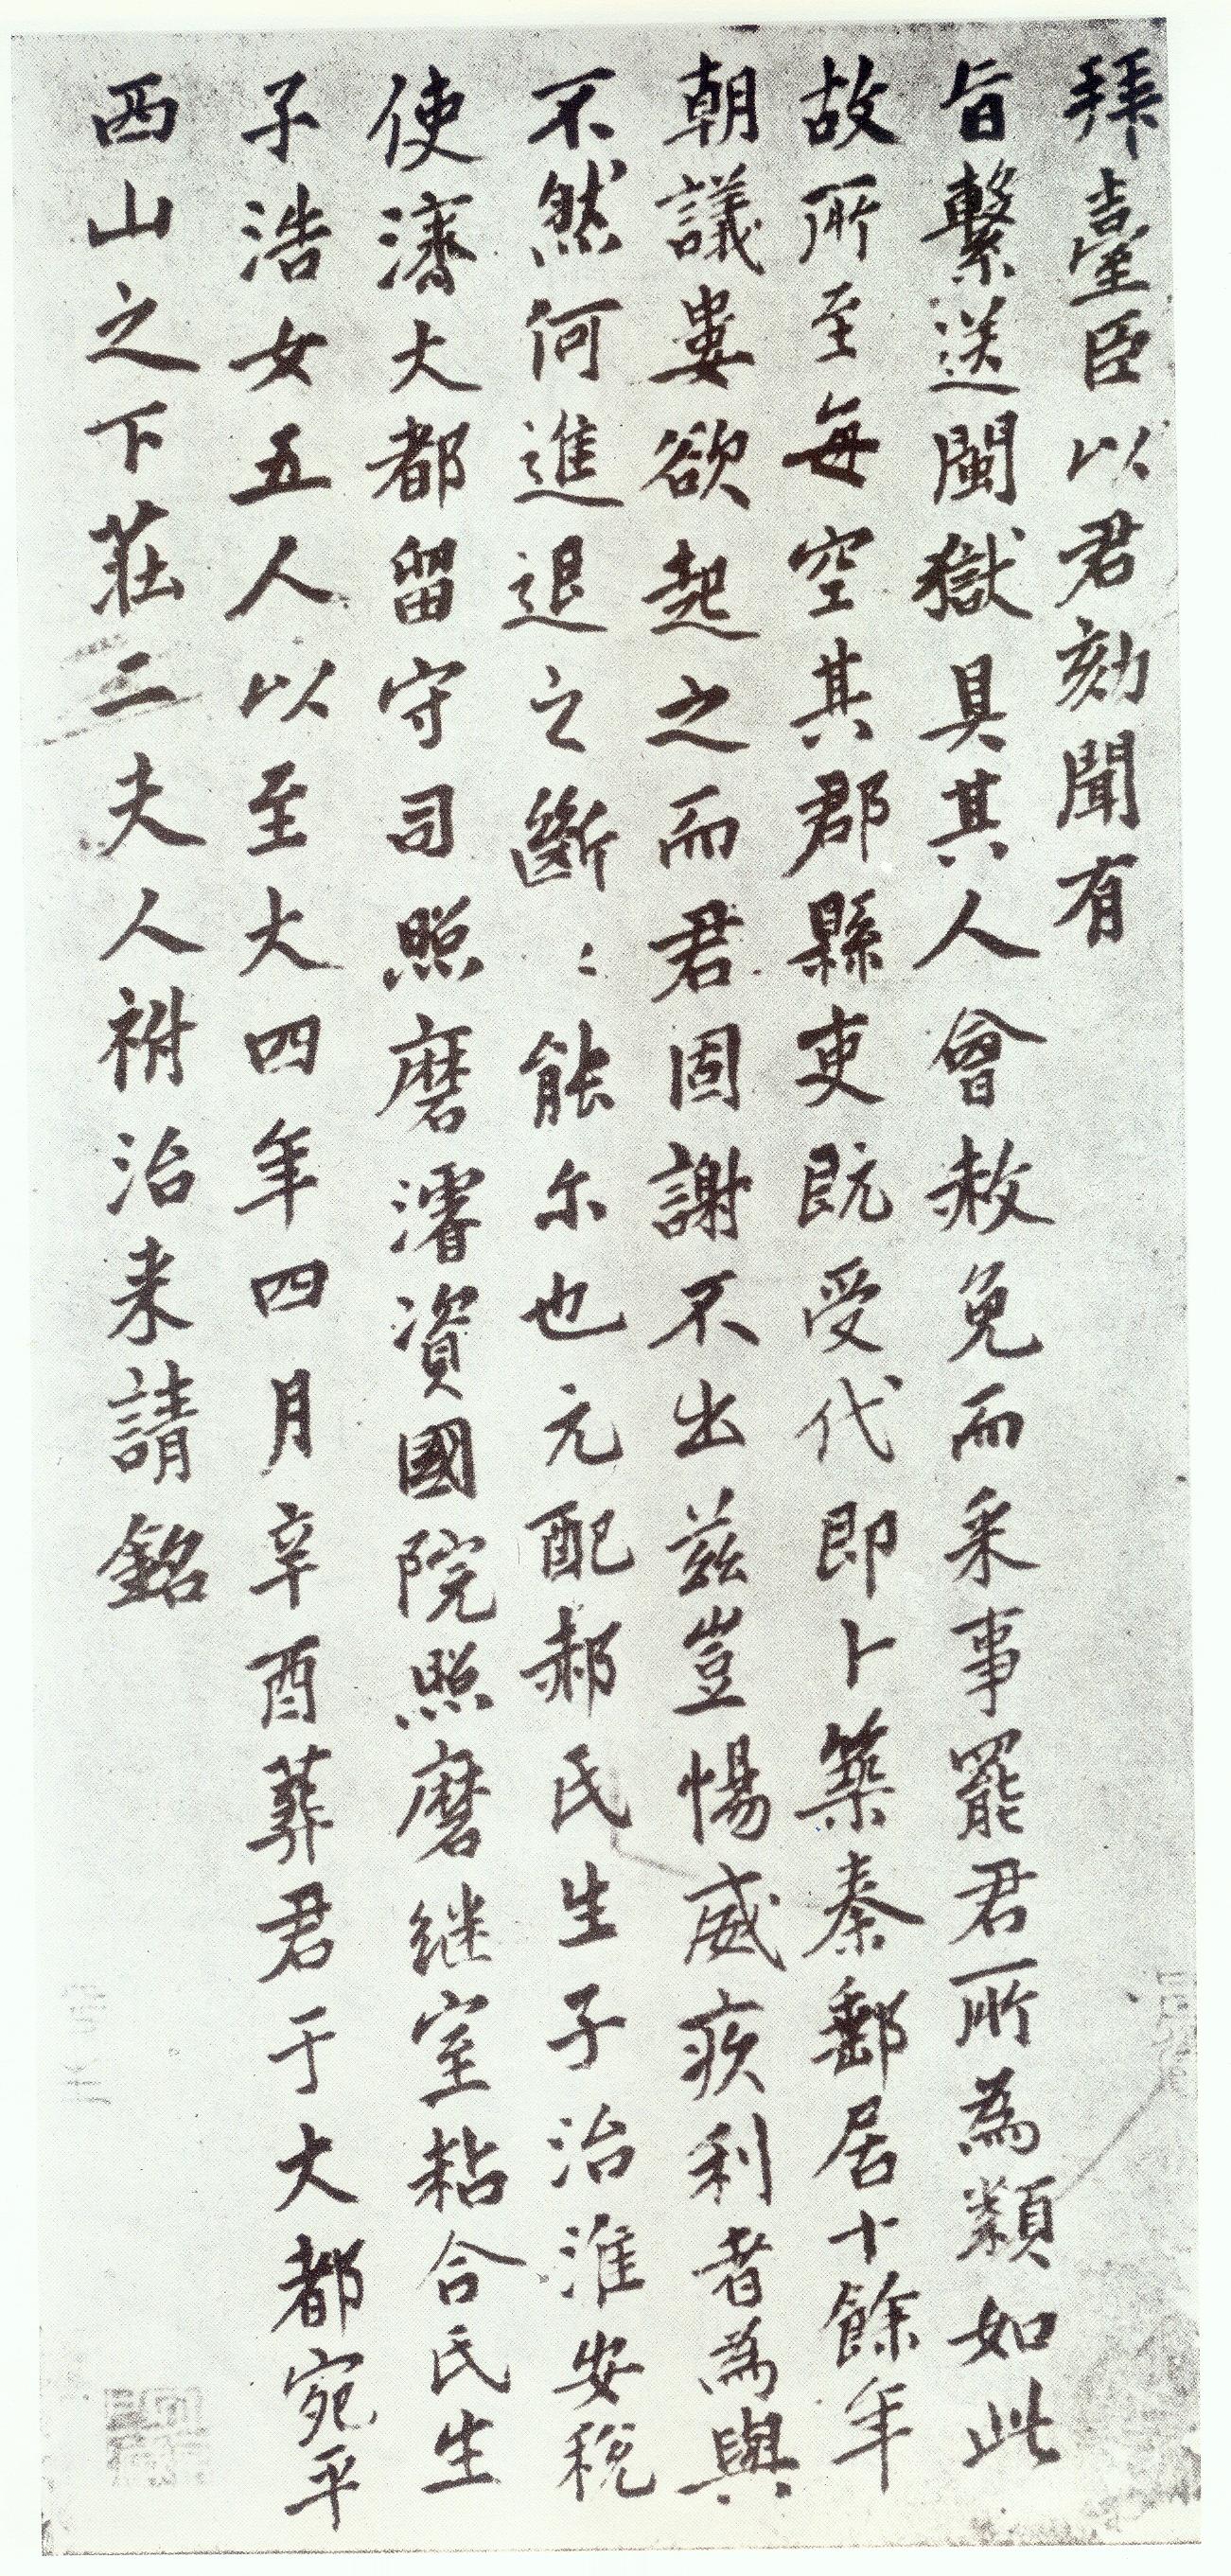 拜臺臣以君劾聞有
旨繫送閩獄具其人會赦免而采事罷君所為類如此
故所至每空其郡縣吏既受代即卜築秦郵居十餘年
朝議婁欲起之而君固謝不出茲豈惕威疚利者為與
不然何進退之斷〻能尔也元配郝氏生子治淮安稅
使濟大都留守司照磨濬資國院照磨継室粘合氏生
子浩女五人以至大四年四月辛酉葬君于大都宛平
西山之下莊二夫人祔治来請銘